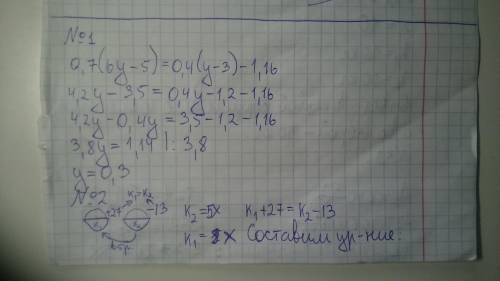 №1
0,7(6y-5)=0,4(y-3)-1,16
4,2y-3,5=0,4y-1,2-1,16
4,2y-0,4y=3,5-1,2-1,16
3,8y=1,14 |:3,8
y=0,3
№2
к₁=к₂
+27 -13 к₂=5x к₁+27=к₂-13
к₁= x Составим ур-ние: